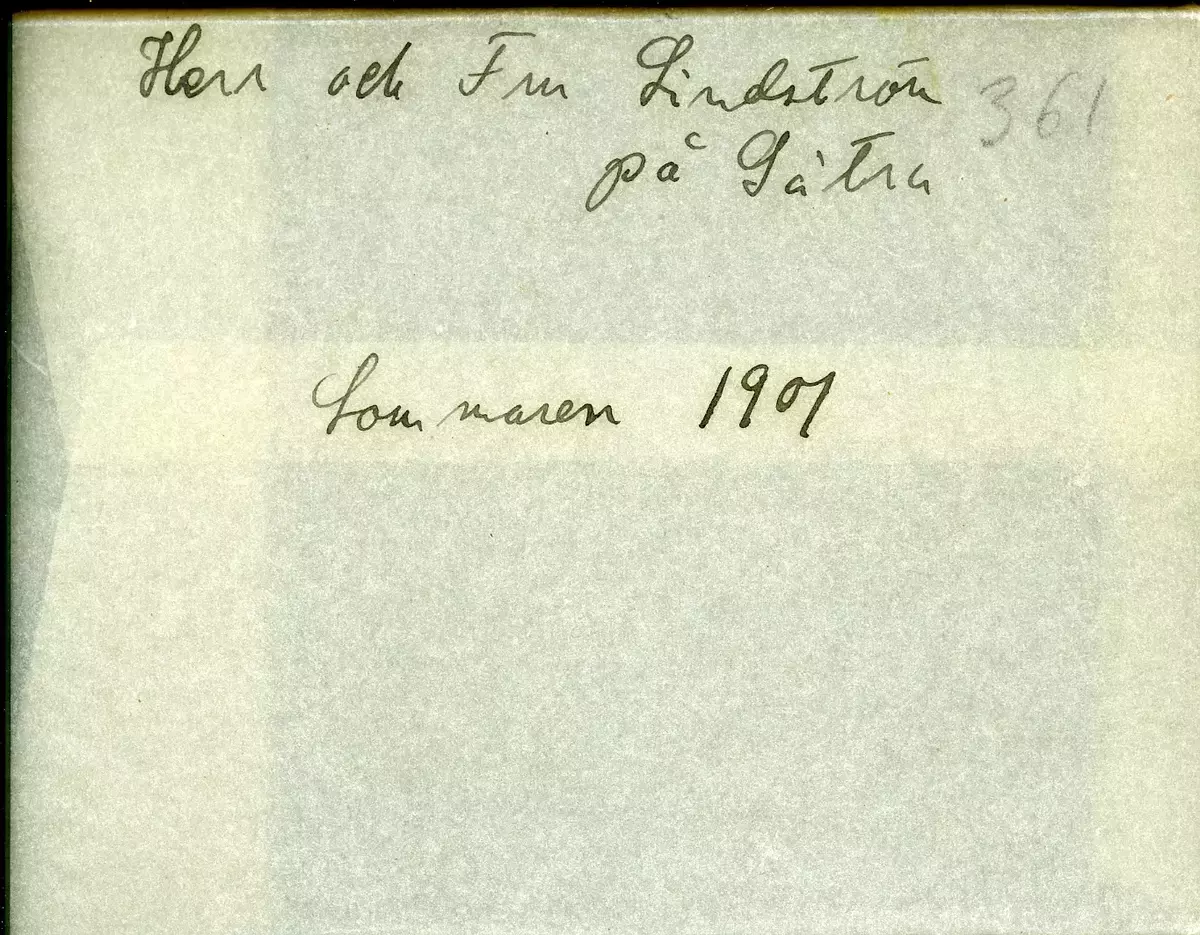 Herr och Fru Lindström 361
på Sätra
Sommaren 1901